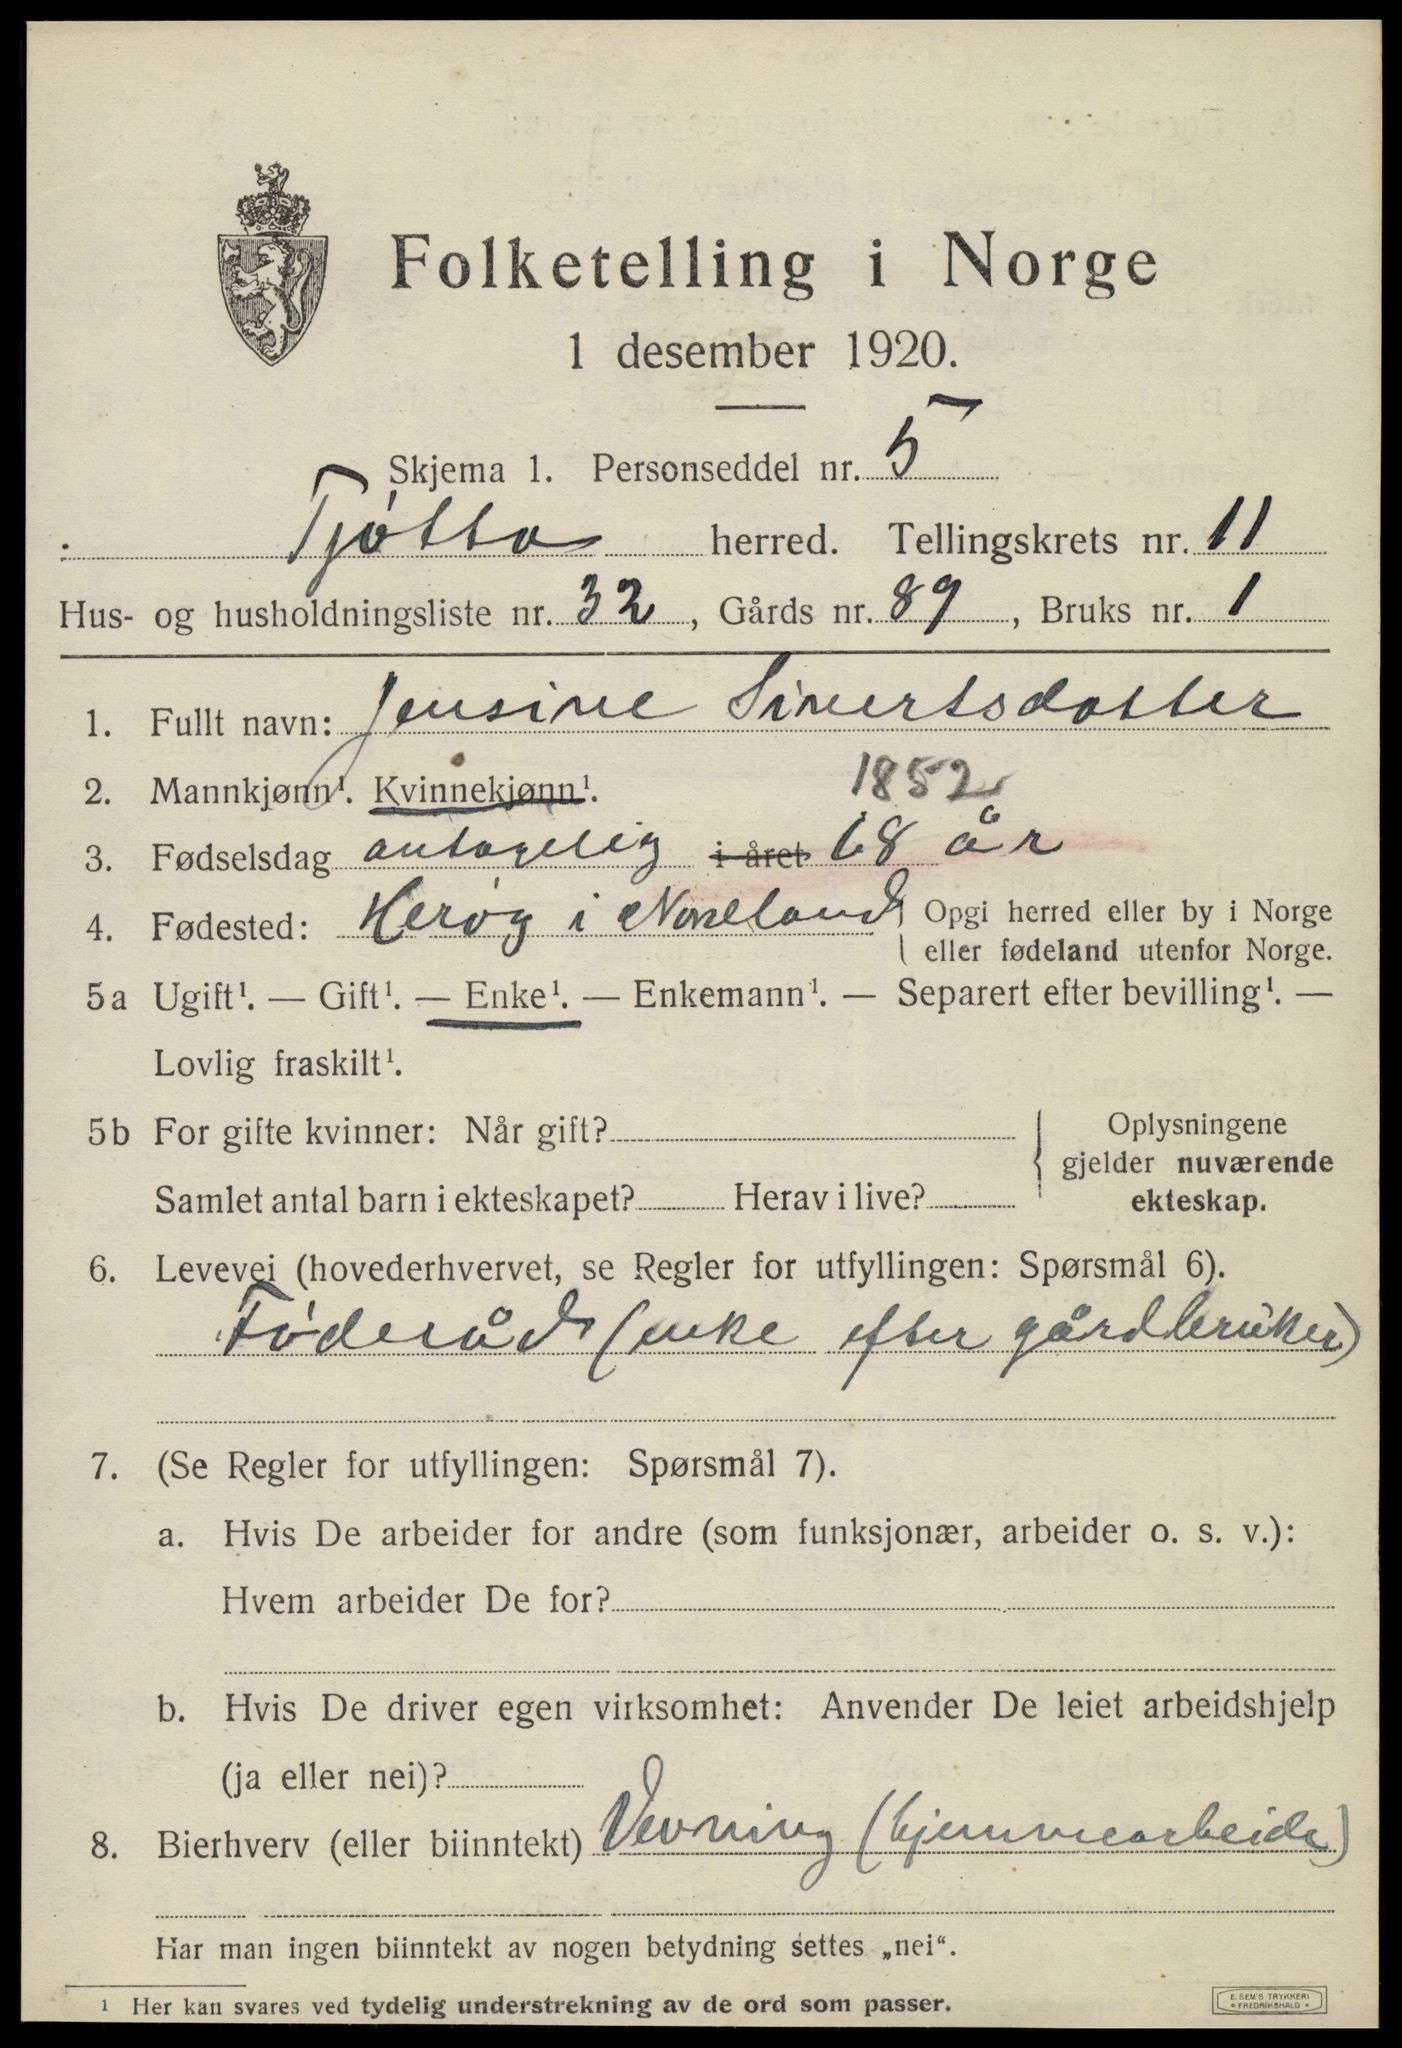 Folketelling i Norge
1 desember 1920.
Skjema 1. Personseddel nr. 5
Tjøtta herred. Tellingskrets nr. 11
Hus- og husholdningsliste nr. 32, Gårds nr. 89, Bruks nr. 1
1. Fullt navn: Jensine Sivertsdatter
2. Mannkjønn¹. Kvinnekjønn¹. 1852
3. Fødselsdag antagelig i året 68 år
4. Fødested: Herøy i Nordland Opgi herred eller by i Norge
eller fødeland utenfor Norge.
5a Ugift¹. — Gift¹. — Enke¹. — Enkemann¹. — Separert efter bevilling¹. —
Lovlig fraskilt¹.
5b For gifte kvinner: Når gift?
Samlet antal barn i ekteskapet? Herav i live?
Oplysningene
gjelder nuværende
ekteskap.
6. Levevei (hovederhvervet, se Regler for utfyllingen: Spørsmål 6).
Føderåd (enke efter gårdbruker)
7. (Se Regler for utfyllingen: Spørsmål 7).
a. Hvis De arbeider for andre (som funksjonær, arbeider o. s. v.):
Hvem arbeider De for?
b. Hvis De driver egen virksomhet: Anvender De leiet arbeidshjelp
(ja eller nei)?
8. Bierhverv (eller biinntekt) Vevning (hjemmearbeide)
Har man ingen biinntekt av nogen betydning settes „nei“.
¹ Her kan svares ved tydelig understrekning av de ord som passer.
E. SEM'S TRYKKERI
FREDRIKSHALD